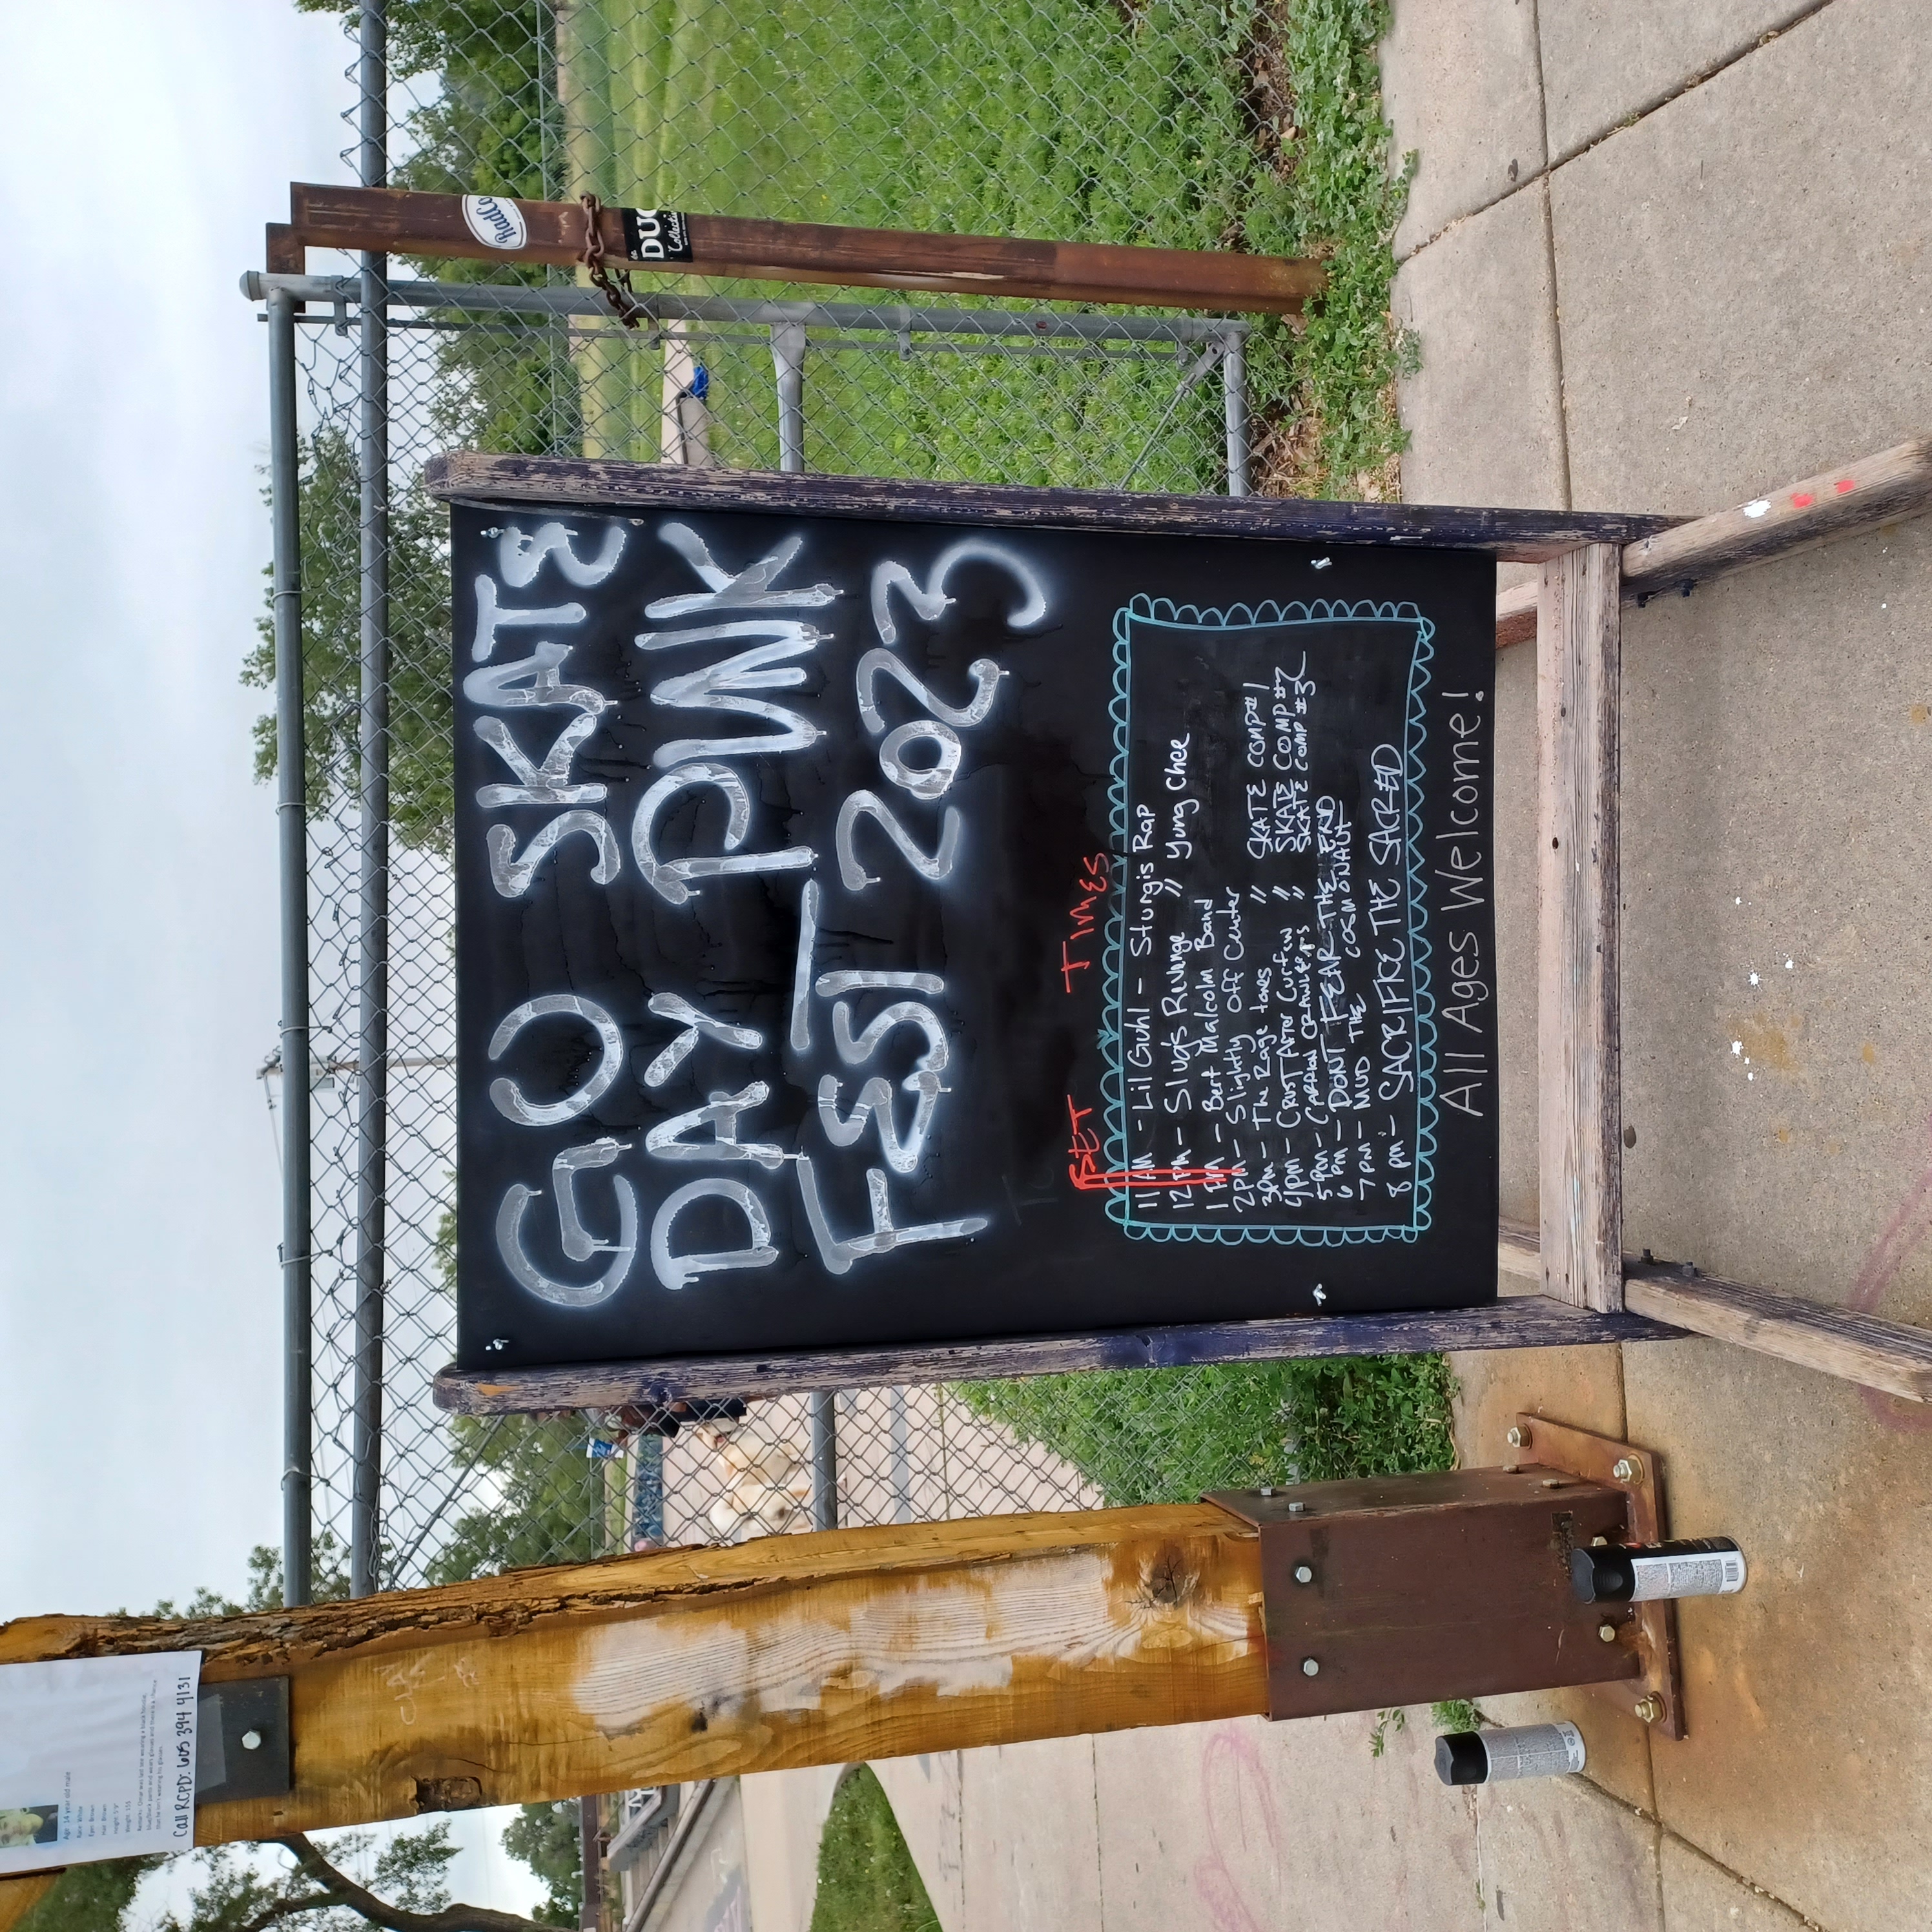 Age: 14 year old male
Race: White
Eyes: Brown
Hair: Brown
Height: 5'9"
Weight: 155
Remarks: Omar was last see wearing a black hoodie,
blue/black pants and wears glasses and there is a chance
that he isn't wearing his glasses.
Call RCPD: 605 394 4131
CLAY
GO SKATE
DAY PUNK
FEST 2023
SET TIMES
11 AM - Lil Guhl - Sturgis Rap
12 PM - Slug's Revenge // Yung Chee
1 PM - Bert Malcolm Band
2PM - Slightly Off Center
3PM - The Rage tones // SKATE COMP #1
4PM - CRUST AFTER CURFEW // SKATE COMP #2
5PM - CARRION CRAWLERS // SKATE COMP #3
6 PM - DONT FEAR THE END
7PM - MUD THE COSMONAUT
8 pm - SACRIFICE THE SACRED
All Ages Welcome!
RadCo
DUC
Collecti